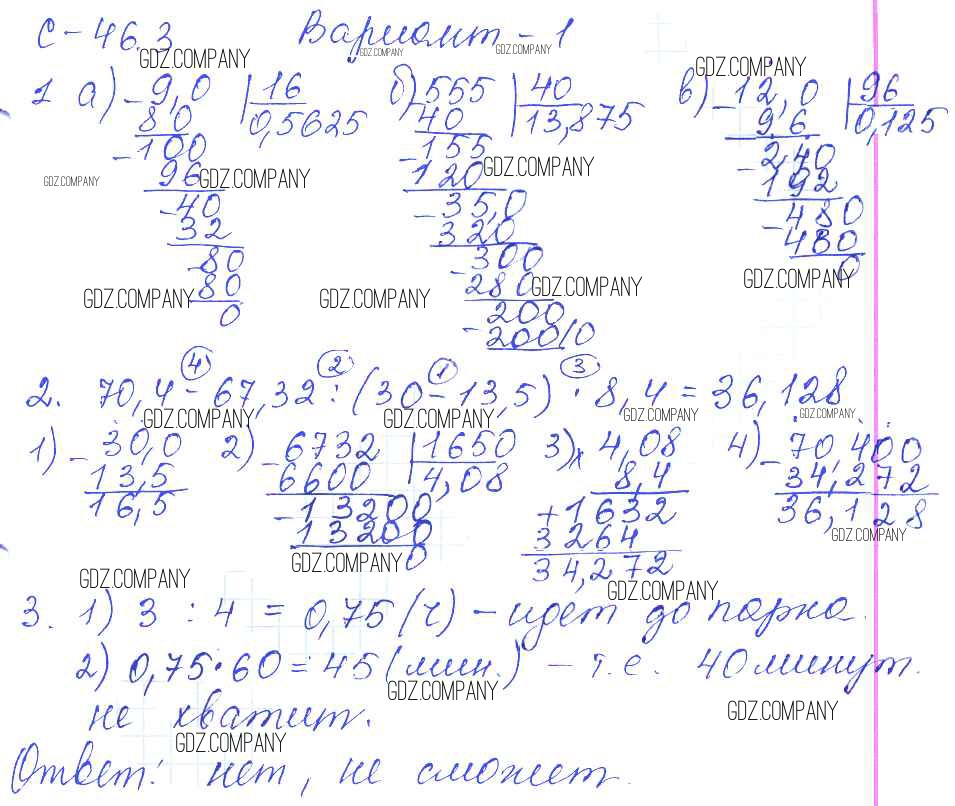 С-46.3 Вариант-1
GDZ.COMPANY GDZ.COMPANY GDZ.COMPANY GDZ.COMPANY
1 а) -9,0 |16 б) 555 |40 в) -12,0 |96
80 0,5625 40 13,875 9,6 0,125
-100 -155 -2,40
96 120 192
GDZ.COMPANY GDZ.COMPANY GDZ.COMPANY
-40 -35,0 -480
32 320 480
-80 -300 0
80 280
GDZ.COMPANY GDZ.COMPANY GDZ.COMPANY GDZ.COMPANY
0 200
-200 0
④ ② ① ③
2. 70,4 - 67,32 : (30 - 13,5) · 8,4 = 36,128
GDZ.COMPANY GDZ.COMPANY GDZ.COMPANY GDZ.COMPANY
1) -30,0 2) -6732 |1650 3) x 4,08 4) -70,400
13,5 6600 4,08 8,4 34,272
16,5 -13200 +1632 36,128
13200 3264
0 34,272
GDZ.COMPANY GDZ.COMPANY
GDZ.COMPANY GDZ.COMPANY
3. 1) 3 : 4 = 0,75 (ч) - идет до парка.
2) 0,75·60 = 45 (мин.) - т.е. 40 минут
GDZ.COMPANY GDZ.COMPANY
не хватит.
GDZ.COMPANY
Ответ: нет, не сможет.